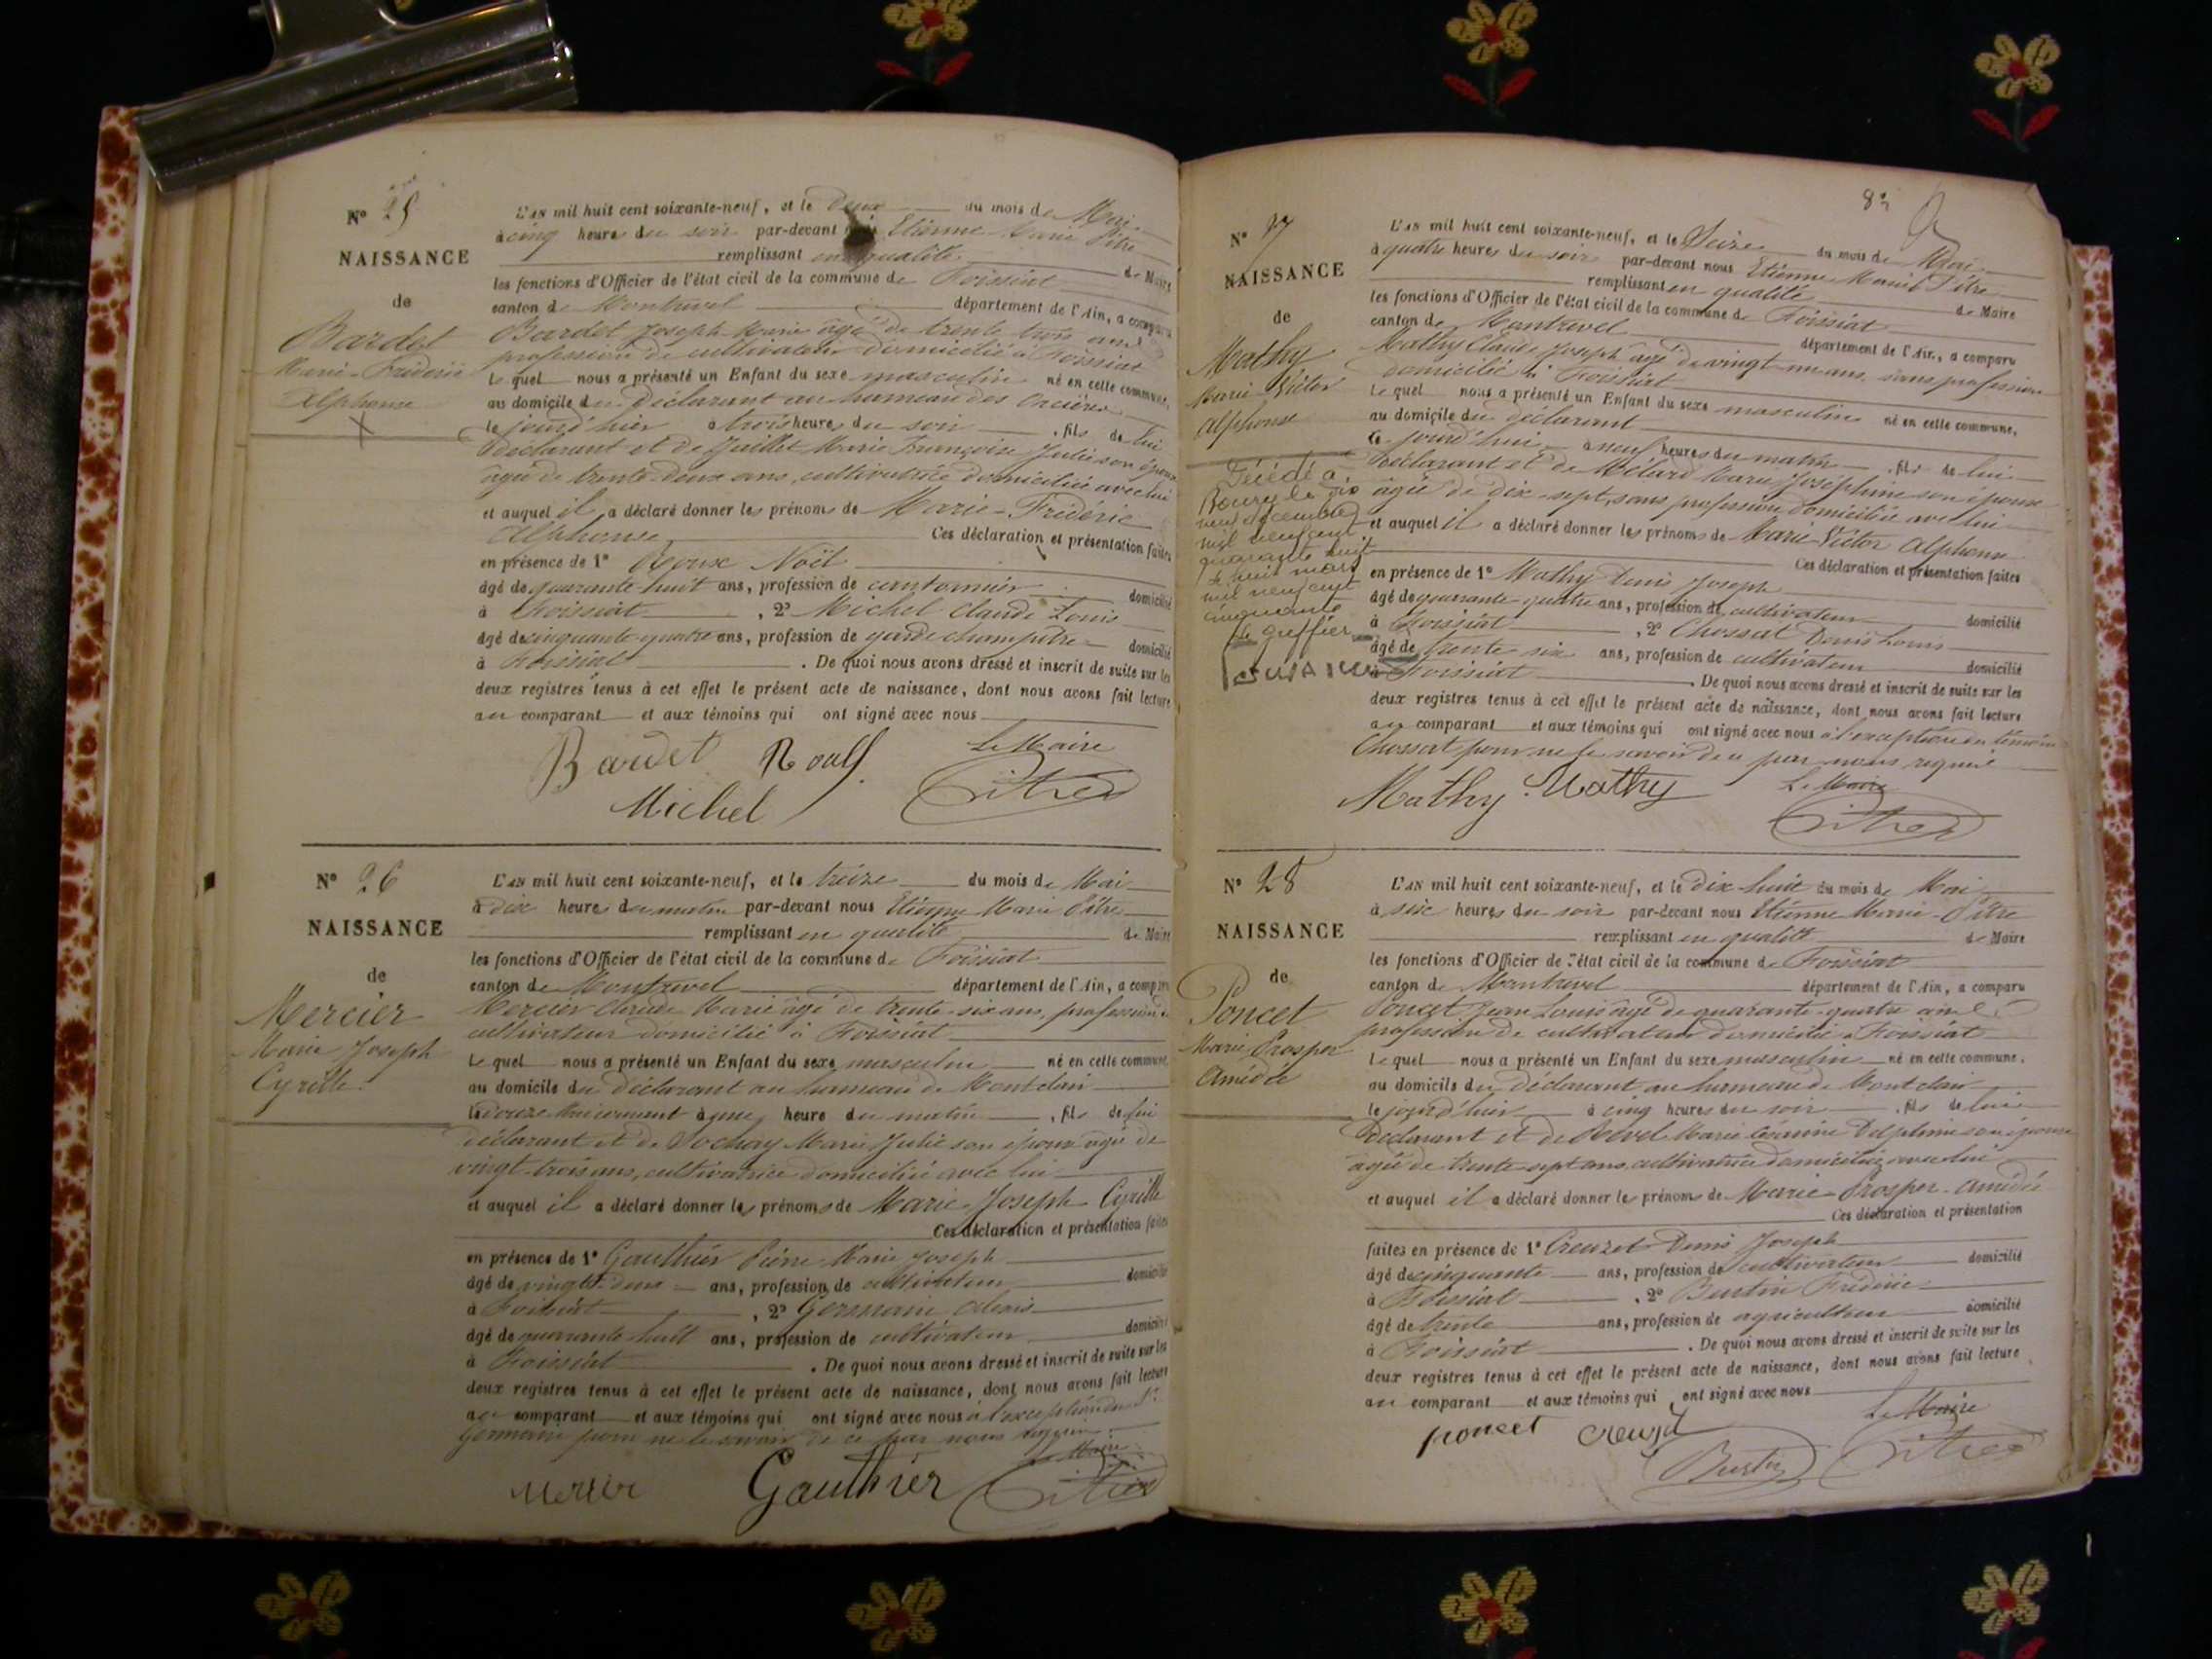 N° 25
NAISSANCE
de
Bardet
Marie-Fréderic
Alphonse
L'AN mil huit cent soixante-neuf, et le deux du mois de Mai
à cinq heures du soir par-devant nous Etienne Marie Pitre
remplissant en qualité de Maire
les fonctions d'Officier de l'état civil de la commune de Foissiat
canton de Montrevel département de l'Ain, a comparu
Bardet Joseph Marie âgé de trente trois ans
profession de cultivateur domicilié à Foissiat
lequel nous a présenté un Enfant du sexe masculin né en cette commune,
au domicile du déclarant au hameau des
le jourd'hier à trois heures du soir , fils de lui
déclarant et de Juillet Marie Françoise Julie son épouse
âgée de trente-deux ans, cultivatrice domiciliée avec lui
et auquel il a déclaré donner les prénoms de Marie-Fréderic
Alphonse Ces déclaration et présentation faites
en présence de 1° Roux Noël
âgé de quarante huit ans, profession de cantonnier domicilié
à Foissiat , 2° Michel Claude Louis
âgé de cinquante-quatre ans, profession de garde champêtre domicilié
à Foissiat . De quoi nous avons dressé et inscrit de suite sur les
deux registres tenus à cet effet le présent acte de naissance, dont nous avons fait lecture
au comparant et aux témoins qui ont signé avec nous
Le Maire
Bardet Roux Pitre
Michel
N° 26
NAISSANCE
de
Mercier
Marie Joseph
Cyrille
L'AN mil huit cent soixante-neuf, et le treize du mois de Mai
à dix heures du matin par-devant nous Etienne Marie Pitre
remplissant en qualité de Maire
les fonctions d'Officier de l'état civil de la commune de Foissiat
canton de Montrevel département de l'Ain, a comparu
Mercier Claude Marie âgé de trente-six ans, profession de
cultivateur domicilié à Foissiat
lequel nous a présenté un Enfant du sexe masculin né en cette commune
au domicile du déclarant au hameau de Montclair
le douze du courant à heure du matin , fils de lui
déclarant et de Sochay Marie Julie son épouse âgée de
vingt-trois ans, cultivatrice domiciliée avec lui
et auquel il a déclaré donner les prénoms de Marie Joseph Cyrille
Ces déclaration et présentation faites
en présence de 1° Gauthier Pierre Marie Joseph
âgé de vingt-deux ans, profession de cultivateur domicilié
à Foissiat , 2° Germain Alexis
âgé de quarante huit ans, profession de cultivateur domicilié
à Foissiat . De quoi nous avons dressé et inscrit de suite sur les
deux registres tenus à cet effet le présent acte de naissance, dont nous avons fait lecture
au comparant et aux témoins qui ont signé avec nous à l'exception du Sr
Germain pour ne le savoir de ce par nous requis
Le Maire
Mercier Gauthier Pitre
83
N° 27
NAISSANCE
de
Mathy
Marie Victor
Alphonse
Décédé à
Bourg le dix
neuf décembre
mil neuf cent
quarante huit
mars
mil neuf cent
cinquante
Le greffier
L'AN mil huit cent soixante-neuf, et le Seize du mois de Mai
à quatre heures du soir par-devant nous Etienne Marie Pitre
remplissant en qualité de Maire
les fonctions d'Officier de l'état civil de la commune de Foissiat
canton de Montrevel département de l'Ain, a comparu
Mathy Claude Joseph âgé de vingt ans sans profession
domicilié à Foissiat
lequel nous a présenté un Enfant du sexe masculin né en cette commune,
au domicile du déclarant
ce jourd'hui à neuf heures du matin , fils de lui
déclarant et de Marie Joséphine son épouse
âgée de dix-sept, sans profession domiciliée avec lui
et auquel il a déclaré donner les prénoms de Marie-Victor Alphonse
Ces déclaration et présentation faites
en présence de 1° Mathy Denis Joseph
âgé de quarante-quatre ans, profession de cultivateur domicilié
à Foissiat , 2° Chossat Denis Louis
âgé de trente six ans, profession de cultivateur domicilié
à Foissiat . De quoi nous avons dressé et inscrit de suite sur les
deux registres tenus à cet effet le présent acte de naissance, dont nous avons fait lecture
au comparant et aux témoins qui ont signé avec nous à l'exception du témoin
Chossat pour ne le savoir de ce par nous requis
Le Maire
Mathy Mathy Pitre
N° 28
NAISSANCE
de
Poncet
Marie Prosper
Amédée
L'AN mil huit cent soixante-neuf, et le dix-huit du mois de Mai
à six heures du soir par-devant nous Etienne Marie Pitre
remplissant en qualité de Maire
les fonctions d'Officier de l'état civil de la commune de Foissiat
canton de Montrevel département de l'Ain, a comparu
Poncet Jean Louis âgé de quarante-quatre ans
profession de cultivateur domicilié à Foissiat
lequel nous a présenté un Enfant du sexe masculin né en cette commune,
au domicile du déclarant au hameau de Montclair
le jourd'hier à cinq heures du soir , fils de lui
déclarant et de Bevel Marie Césarine Delphine son épouse
âgée de trente-sept ans cultivatrice domiciliée avec lui
et auquel il a déclaré donner les prénoms de Marie-Prosper-Amédée
Ces déclaration et présentation
faites en présence de 1° Creuzet Denis Joseph
âgé de cinquante ans, profession de cultivateur domicilié
à Foissiat , 2° Burtin Fréderic
âgé de trente ans, profession de agriculteur domicilié
à Foissiat . De quoi nous avons dressé et inscrit de suite sur les
deux registres tenus à cet effet le présent acte de naissance, dont nous avons fait lecture
au comparant et aux témoins qui ont signé avec nous
Le Maire
poncet Creuzet
Burtin Pitre